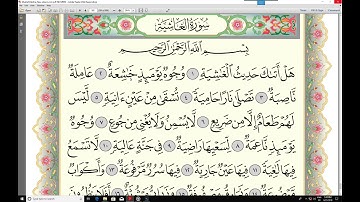 سُورَةُ الْغَاشِيَةِ
بِسْمِ اللَّهِ الرَّحْمَٰنِ الرَّحِيمِ
هَلْ أَتَىٰكَ حَدِيثُ الْغَٰشِيَةِ ١ وُجُوهٌ يَوْمَئِذٍ خَٰشِعَةٌ ٢ عَامِلَةٌ
نَّاصِبَةٌ ٣ تَصْلَىٰ نَارًا حَامِيَةً ٤ تُسْقَىٰ مِنْ عَيْنٍ ءَانِيَةٍ ٥ لَّيْسَ
لَهُمْ طَعَامٌ إِلَّا مِن ضَرِيعٍ ٦ لَّا يُسْمِنُ وَلَا يُغْنِي مِن جُوعٍ ٧ وُجُوهٌ
يَوْمَئِذٍ نَّاعِمَةٌ ٨ لِّسَعْيِهَا رَاضِيَةٌ ٩ فِي جَنَّةٍ عَالِيَةٍ ١٠ لَّا تَسْمَعُ
فِيهَا لَٰغِيَةً ١١ فِيهَا عَيْنٌ جَارِيَةٌ ١٢ فِيهَا سُرُرٌ مَّرْفُوعَةٌ ١٣ وَأَكْوَابٌ